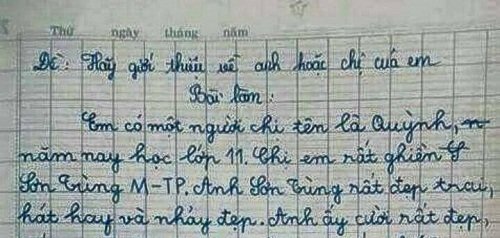 Thứ ngày tháng năm
Đề: Hãy giới thiệu về anh hoặc chị của em
Bài làm:
Em có một người chị tên là Quỳnh,
năm nay học lớp 11. Chị em rất ghiền
Sơn Tùng M-TP. Anh Sơn Tùng rất đẹp trai,
hát hay và nhảy đẹp. Anh ấy cười rất đẹp,